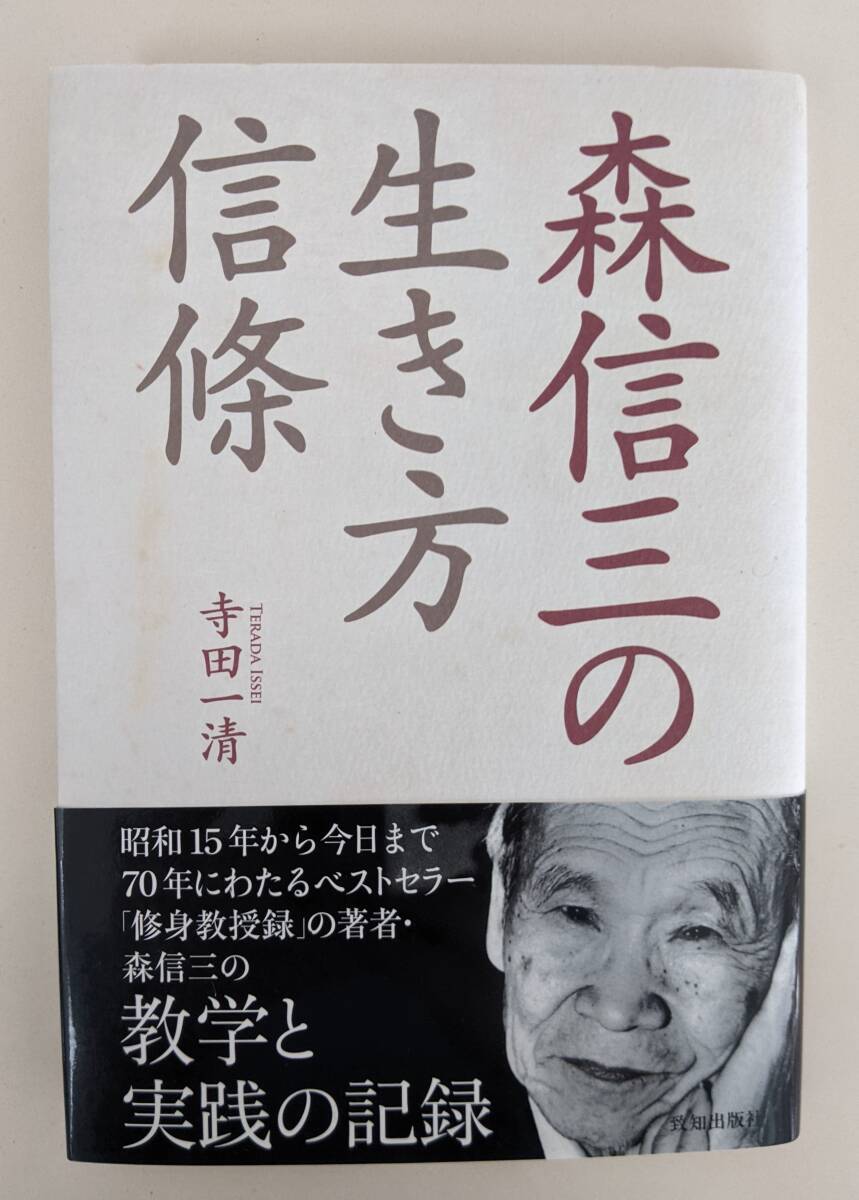 森信三の
生き方
信條
TERADA ISSEI
寺田一清
昭和15年から今日まで
70年にわたるベストセラー
「修身教授録」の著者・
森信三の
教学と
実践の記録
致知出版社